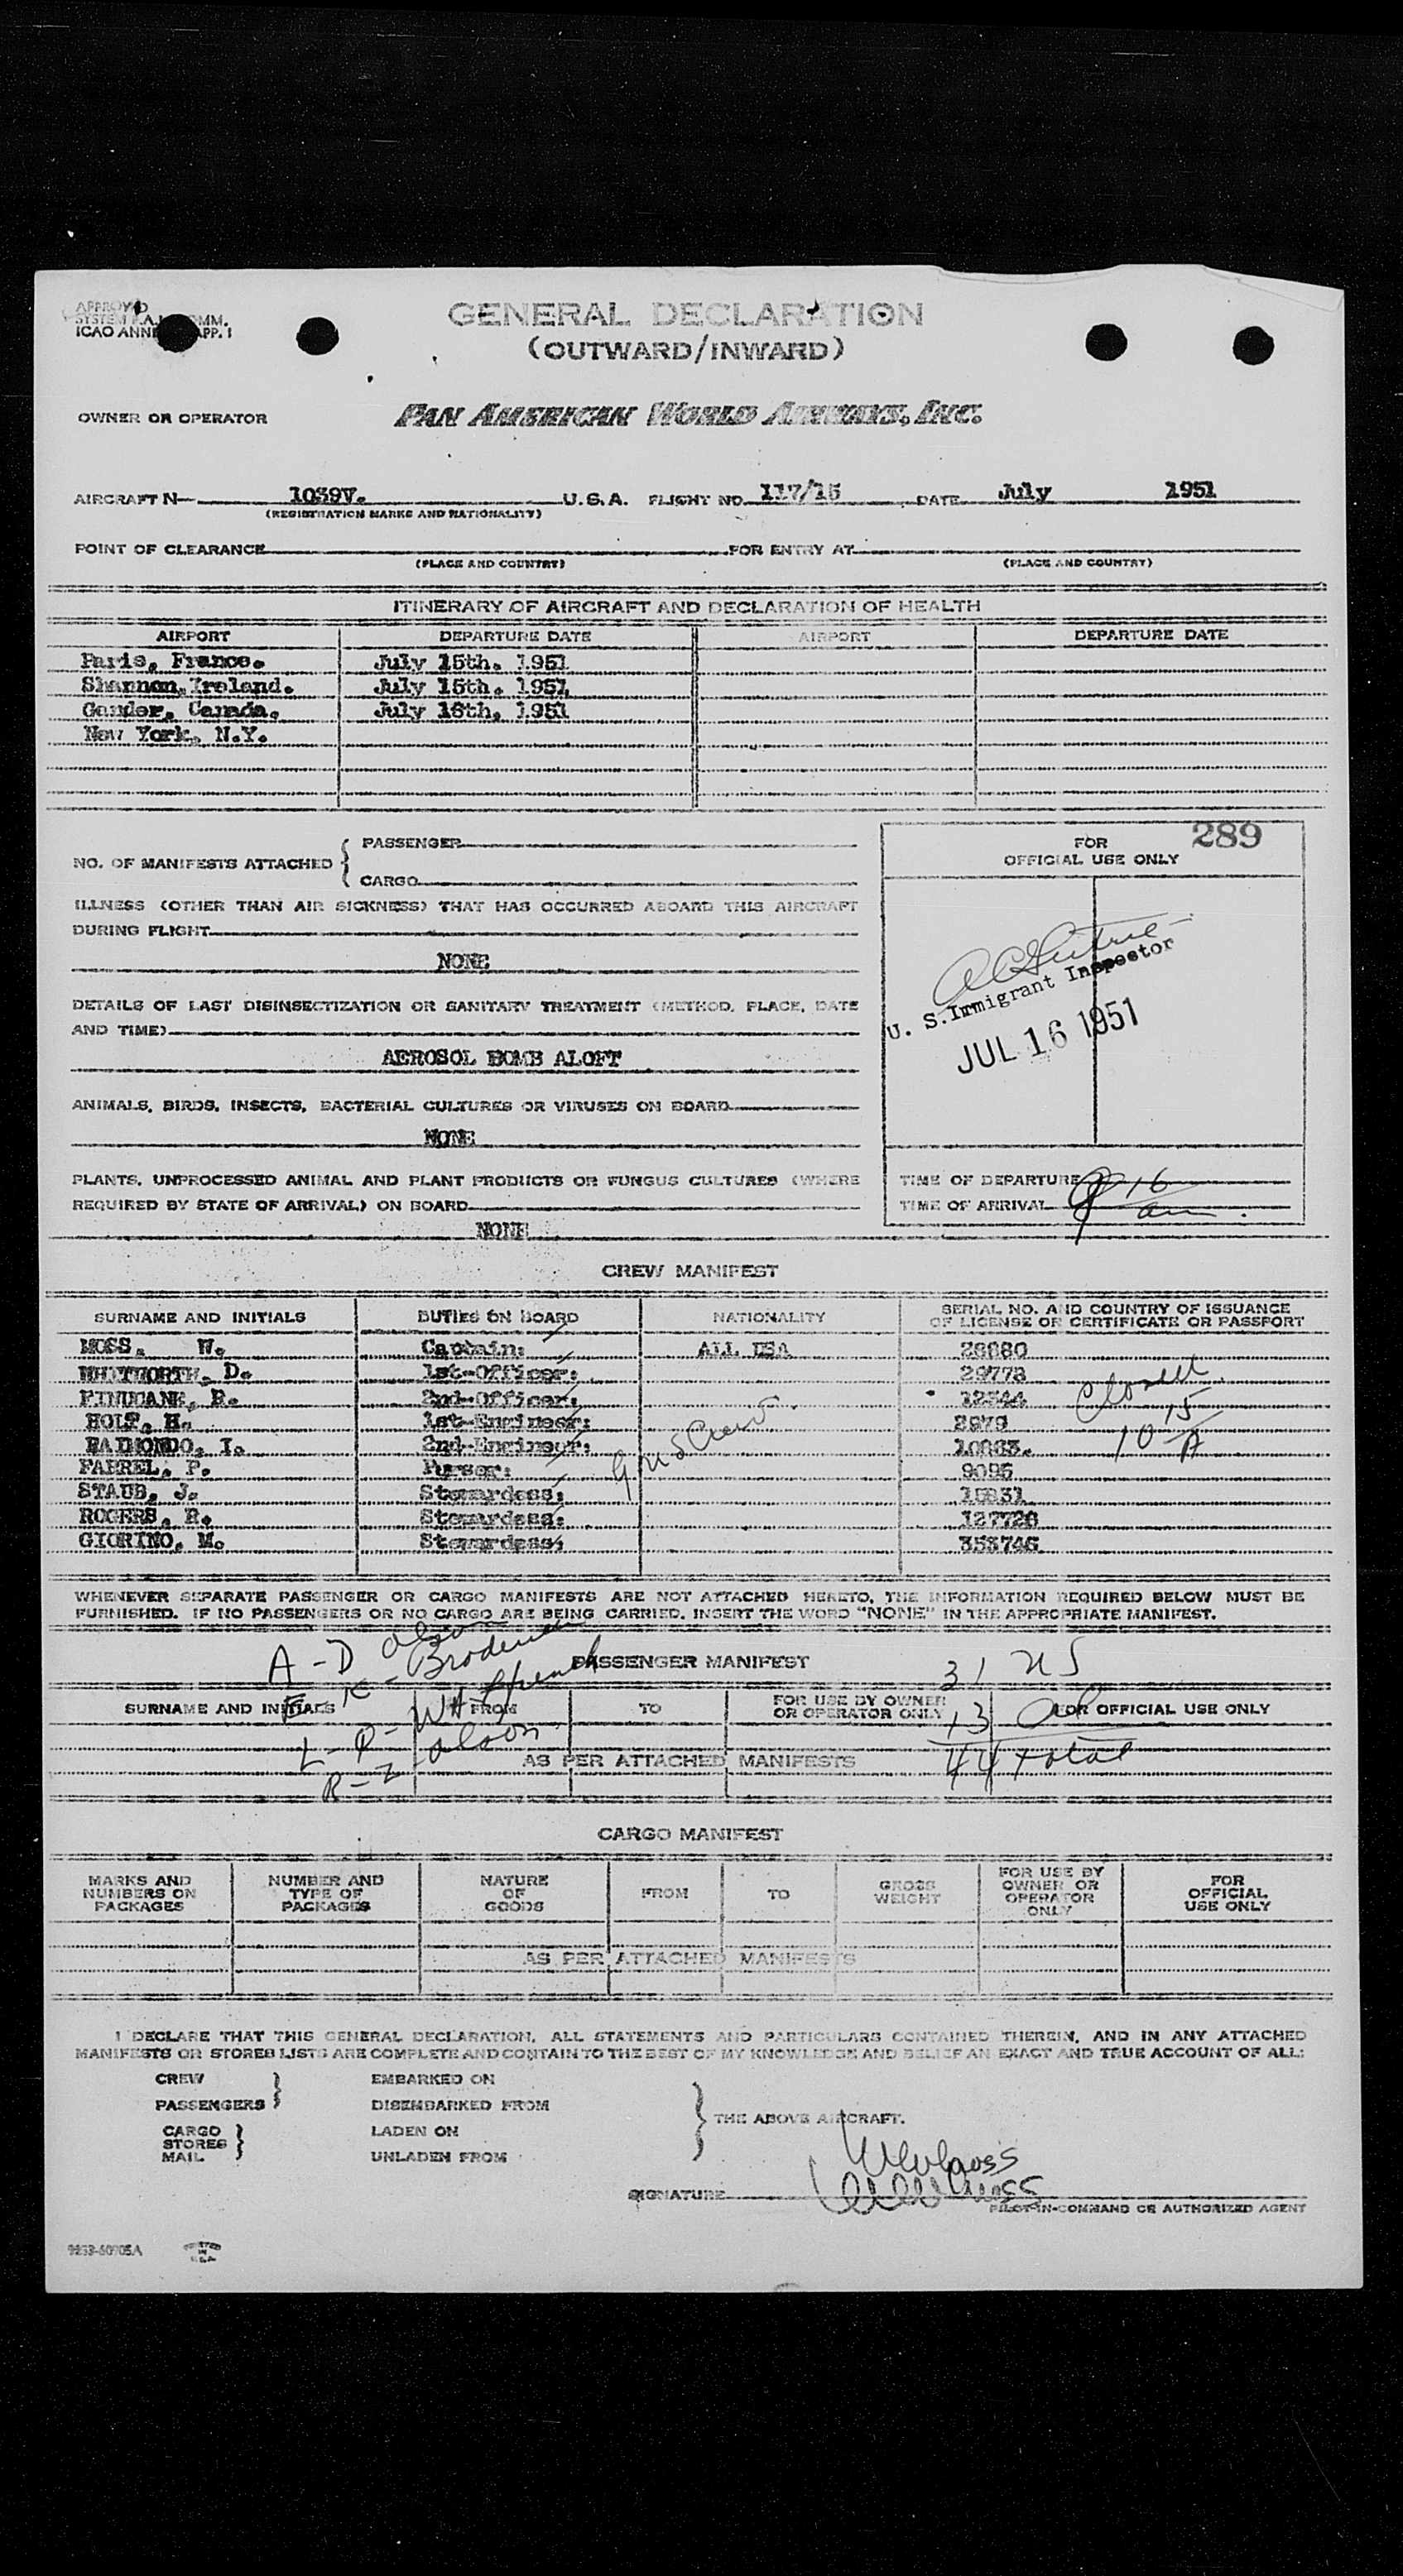 APPROVED
SYSTEM COMM.
ICAO ANNE APP. 1
GENERAL DECLARATION
(OUTWARD/INWARD)
OWNER OR OPERATOR PAN AMERICAN WORLD AIRWAYS, INC.
AIRCRAFT N— 1039V. U.S.A. FLIGHT NO. 117/15 DATE July 1951
(REGISTRATION MARKS AND NATIONALITY)
POINT OF CLEARANCE FOR ENTRY AT
(PLACE AND COUNTRY) (PLACE AND COUNTRY)
ITINERARY OF AIRCRAFT AND DECLARATION OF HEALTH
AIRPORT DEPARTURE DATE AIRPORT DEPARTURE DATE
Paris, France. July 15th. 1951
Shannon, Ireland. July 15th. 1951
Gander, Canada. July 16th. 1951
New York, N.Y.
NO. OF MANIFESTS ATTACHED { PASSENGER
CARGO
FOR OFFICIAL USE ONLY 289
ILLNESS (OTHER THAN AIR SICKNESS) THAT HAS OCCURRED ABOARD THIS AIRCRAFT
DURING FLIGHT
NONE
DETAILS OF LAST DISINSECTIZATION OR SANITARY TREATMENT (METHOD, PLACE, DATE
AND TIME)
AEROSOL BOMB ALOFT
U. S. Immigrant Inspector
JUL 16 1951
ANIMALS, BIRDS, INSECTS, BACTERIAL CULTURES OR VIRUSES ON BOARD
NONE
PLANTS, UNPROCESSED ANIMAL AND PLANT PRODUCTS OR FUNGUS CULTURES (WHERE
REQUIRED BY STATE OF ARRIVAL) ON BOARD
NONE
TIME OF DEPARTURE
TIME OF ARRIVAL 9 16 am
CREW MANIFEST
SURNAME AND INITIALS DUTIES ON BOARD NATIONALITY SERIAL NO. AND COUNTRY OF ISSUANCE
OF LICENSE OR CERTIFICATE OR PASSPORT
MOSS, W. Captain: ALL USA 28680
WHITWORTH, D. 1st-Officer: 29778
FINUCANE, R. 2nd-Officer: 12344
HOLT, H. 1st-Engineer: 2979
RAIMONDO, I. 2nd-Engineer:
FARREL, P. Purser: 9095
STAUB, J. Stewardess: 15831
ROGERS, R. Stewardess: 127726
GIORINO, M. Stewardess: 353746
9 US Crew
10 15 A
WHENEVER SEPARATE PASSENGER OR CARGO MANIFESTS ARE NOT ATTACHED HERETO, THE INFORMATION REQUIRED BELOW MUST BE
FURNISHED. IF NO PASSENGERS OR NO CARGO ARE BEING CARRIED, INSERT THE WORD "NONE" IN THE APPROPRIATE MANIFEST.
A - D Olson
PASSENGER MANIFEST
E - K - Broderick
31 US
SURNAME AND INITIALS FROM TO FOR USE BY OWNER OR OPERATOR ONLY FOR OFFICIAL USE ONLY
L - P - WH French
13 al
R - Z - Olson
44 total
AS PER ATTACHED MANIFESTS
CARGO MANIFEST
MARKS AND NUMBERS ON PACKAGES NUMBER AND TYPE OF PACKAGES NATURE OF GOODS FROM TO GROSS WEIGHT FOR USE BY OWNER OR OPERATOR ONLY FOR OFFICIAL USE ONLY
AS PER ATTACHED MANIFESTS
I DECLARE THAT THIS GENERAL DECLARATION, ALL STATEMENTS AND PARTICULARS CONTAINED THEREIN, AND IN ANY ATTACHED
MANIFESTS OR STORES LISTS ARE COMPLETE AND CONTAIN TO THE BEST OF MY KNOWLEDGE AND BELIEF AN EXACT AND TRUE ACCOUNT OF ALL:
CREW EMBARKED ON
PASSENGERS DISEMBARKED FROM
THE ABOVE AIRCRAFT.
CARGO LADEN ON
STORES
MAIL UNLADEN FROM
SIGNATURE
PILOT-IN-COMMAND OR AUTHORIZED AGENT
PRINTED IN U.S.A.